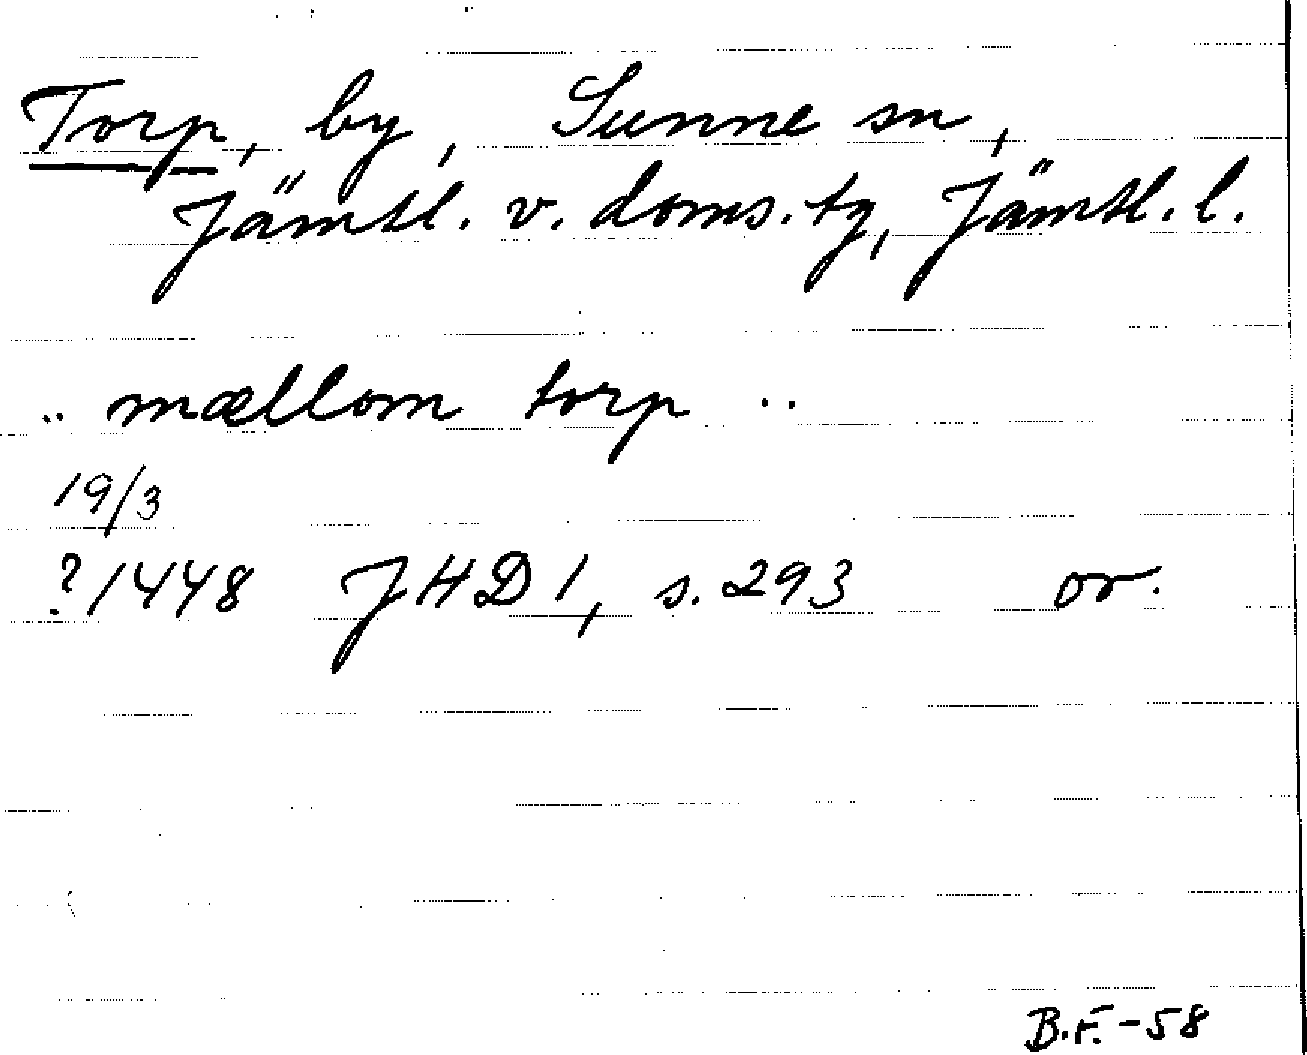 Torp, by, Sunne sn,
Jämtl. v. doms. tg, Jämtl. l.
.. mællom torp ..
19/3
?1448 JHD 1, s. 293 or.
B.F. -58